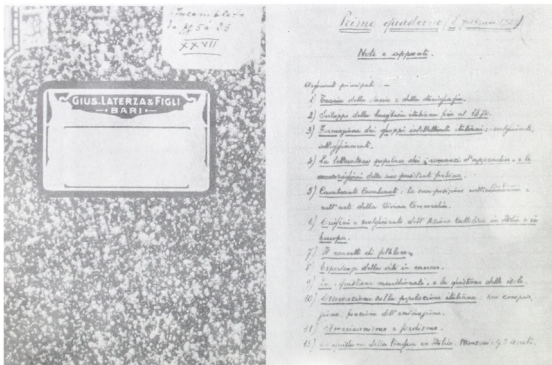 Incompleto
da pg 5 a 26
XXVII
GIUS. LATERZA & FIGLI
BARI
Primo quaderno (8 febbraio 1929)
Note e appunti.
Argomenti principali: —
1) Teoria della storia e della storiografia.
2) Sviluppo della borghesia italiana fino al 1870.
3) Formazione dei gruppi intellettuali italiani: svolgimento,
atteggiamenti.
4) La letteratura popolare dei "romanzi d'appendice" e le
5) Cavalcante Cavalcanti: la sua posizione nell'
nell'arte della Divina Commedia.
6) Origini e svolgimento dell'Azione Cattolica in Italia e in
Europa.
7) Il concetto di folklore.
8) Esperienze della vita in carcere.
9) La "quistione meridionale" e la quistione delle isole.
10) Osservazioni sulla popolazione italiana: sua composi-
zione, funzione dell'emigrazione.
11) Americanismo e fordismo.
12) della lingua in Italia: Manzoni e G. I. Ascoli.